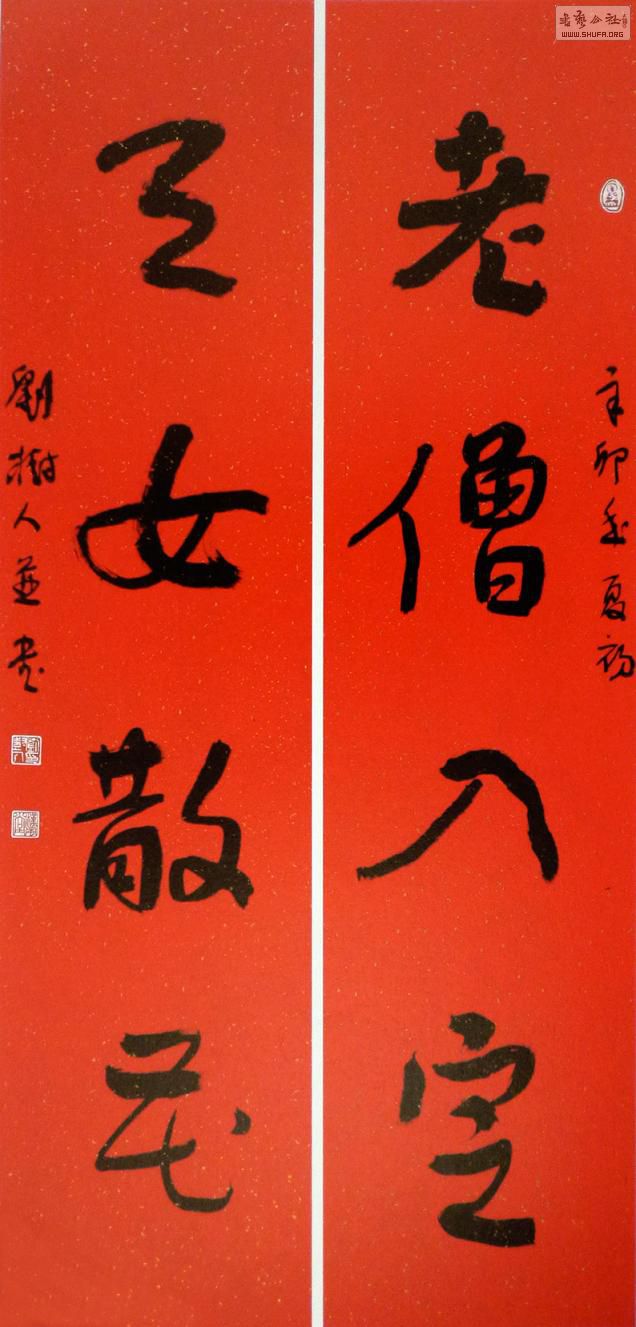 辛卯年夏初
老僧入定
天女散花
劉樹人並書
書藝公社
WWW.SHUFA.ORG